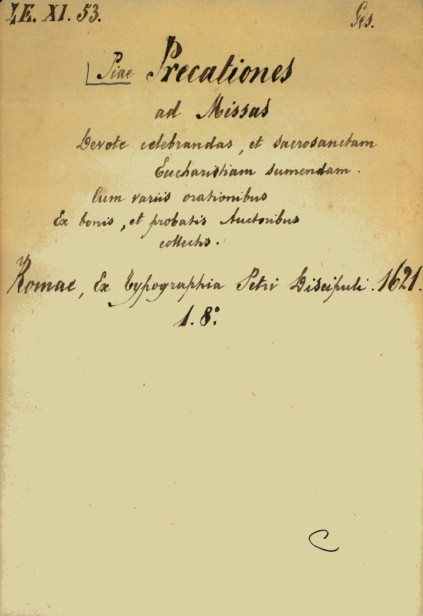 ZE. XI. 53. Ges.
Piae Precationes
ad Missas
Devote celebrandas, et sacrosanctam
Eucharistiam sumendam.
Cum variis orationibus
Ex bonis, et probatis Auctoribus
collectis.
Romae, Ex Typographia Petri Discipuli. 1621.
1. 8°.
C